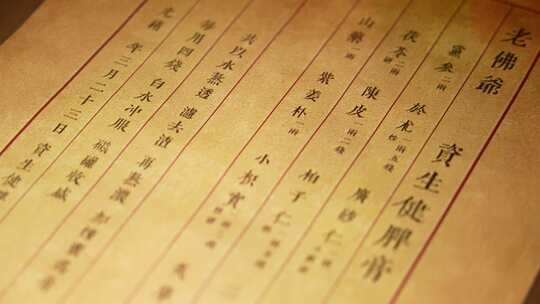 老佛爺 資生健脾膏
黨參二兩 於朮炒一兩五錢 廣砂仁一兩
茯苓研二兩 陳皮一兩二錢 柏子仁一兩
山藥一兩 紫薑朴一兩 小枳實
共以水熬透 濾去渣 再熬濃
每用四錢 白水沖服
光緒 年三月二十三日 資生健